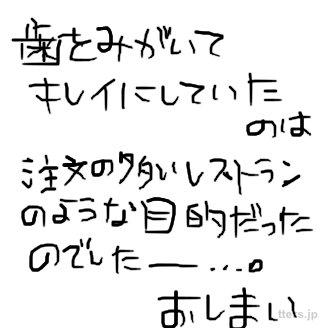 歯をみがいて
キレイにしていた
のは
注文の多いレストラン
のような目的だった
のでしたー…。
おしまい